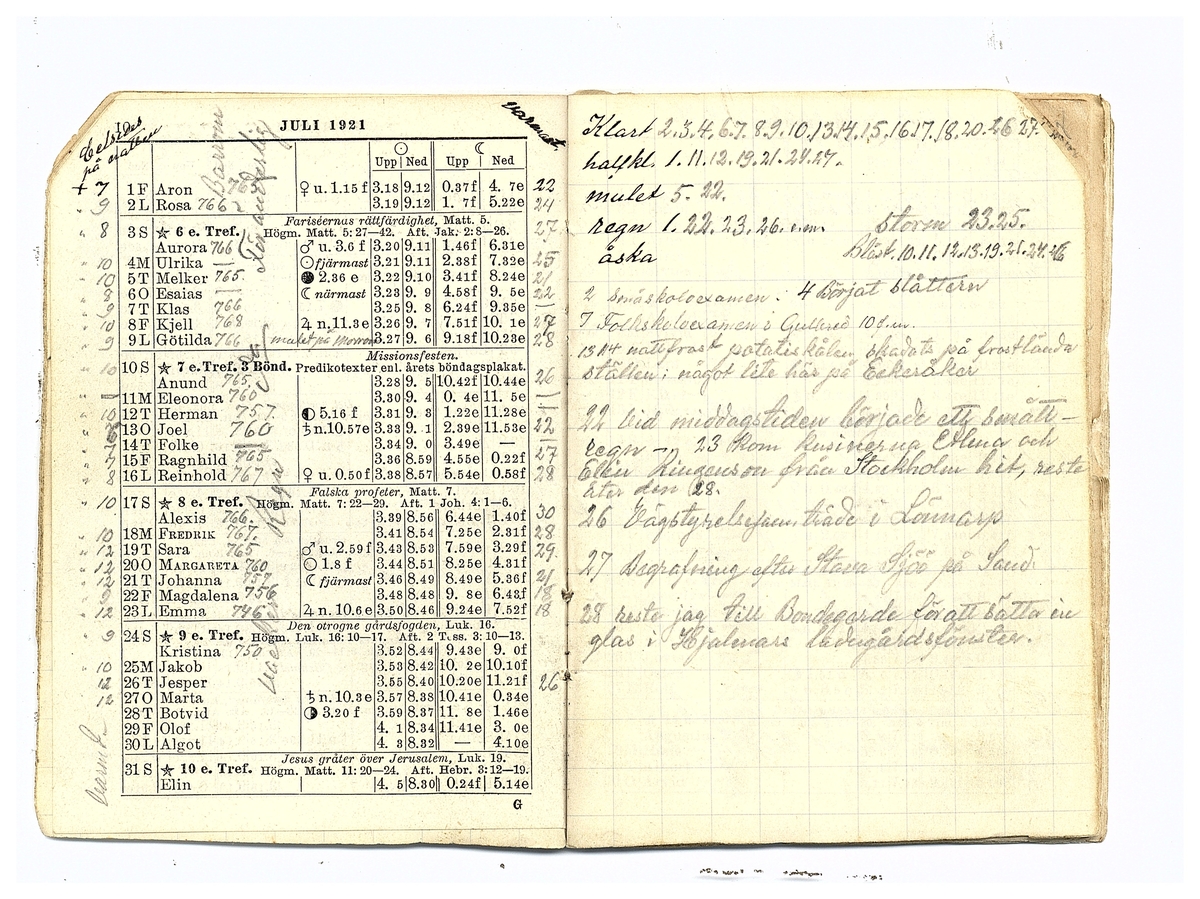 Celsides
på natten
varmast
JULI 1921
☉ ☾
Upp Ned Upp Ned
+ 7 1 F Aron ♀ u. 1.15 f 3.18 9.12 0.37f 4. 7e 22
" 9 2 L Rosa 766 3.19 9.12 1. 7f 5.22e 24
Fariséernas rättfärdighet, Matt. 5.
" 8 3 S ★ 6 e. Tref. Högm. Matt. 5: 27—42. Aft. Jak. 2: 8—26. 27
Aurora 766 ♂ u. 3.6 f 3.20 9.11 1.46f 6.31e
" 10 4 M Ulrika — ☉ fjärmast 3.21 9.11 2.38f 7.32e 25
10 5 T Melker 765. ● 2.36 e 3.22 9.10 3.41f 8.24e 21
" 8 6 O Esaias — ☾ närmast 3.23 9. 9 4.58f 9. 5e 22
9 7 T Klas 766 3.25 9. 8 6.24f 9.35e —
" 10 8 F Kjell 768 ♃ n. 11.3e 3.26 9. 7 7.51f 10. 1e 27
" 9 9 L Götilda 766 mulet på morron 3.27 9. 6 9.18f 10.23e 28
Missionsfesten.
" 10 10 S ★ 7 e. Tref. 3 Bönd. Predikotexter enl. årets böndagsplakat.
Anund 765. 3.28 9. 5 10.42f 10.44e 26
11 M Eleonora 760 3.30 9. 4 0. 4e 11. 5e
" 10 12 T Herman 757. ◐ 5.16 f 3.31 9. 3 1.22e 11.28e
13 O Joel 760 ♄ n. 10.57e 3.33 9. 1 2.39e 11.53e 22
14 T Folke — 3.34 9. 0 3.49e —
" 7 15 F Ragnhild 765 3.36 8.59 4.55e 0.22f 27
" 8 16 L Reinhold 767 ♀ u. 0.50f 3.38 8.57 5.54e 0.58f 28
Falska profeter, Matt. 7.
" 10 17 S ★ 8 e. Tref. Högm. Matt. 7: 22—29. Aft. 1 Joh. 4: 1—6.
Alexis 766. 3.39 8.56 6.44e 1.40f 30
" 10 18 M FREDRIK 767. 3.41 8.54 7.25e 2.31f 28
" 12 19 T Sara 765 ♂ u. 2.59 f 3.43 8.53 7.59e 3.29f 29.
" 12 20 O MARGARETA 760 ○ 1.8 f 3.44 8.51 8.25e 4.31f
" 12 21 T Johanna 757 ☾ fjärmast 3.46 8.49 8.49e 5.36f 21
" 9 22 F Magdalena 756 3.48 8.48 9. 8e 6.43f 18
" 12 23 L Emma 746 ♃ n. 10.6 e 3.50 8.46 9.24e 7.52f 18
Den otrogne gårdsfogden, Luk. 16.
" 9 24 S ★ 9 e. Tref. Högm. Luk. 16: 10—17. Aft. 2 Tess. 3: 10—13.
Kristina 750 3.52 8.44 9.43e 9. 0f
" 10 25 M Jakob 3.53 8.42 10. 2e 10.10f
" 12 26 T Jesper 3.55 8.40 10.20e 11.21f 26
" 12 27 O Marta ♄ n. 10.3e 3.57 8.38 10.41e 0.34e
28 T Botvid ◑ 3.20 f 3.59 8.37 11. 8e 1.46e
29 F Olof 4. 1 8.34 11.41e 3. 0e
30 L Algot 4. 3 8.32 — 4.10e
Jesus gråter över Jerusalem, Luk. 19.
31 S ★ 10 e. Tref. Högm. Matt. 11: 20—24. Aft. Hebr. 3: 12—19.
Elin 4. 5 8.30 0.24f 5.14e
G
Klart 2.3.4.6.7.8.9.10.13.14.15.16.17.18.20.26 27.
halfkl. 1.11.12.19.21.24.27.
mulet 5. 22.
regn 1. 22. 23. 26. e.m. storm 23.25.
åska Blåst. 10.11.12.13.19.21.24.26
2 Småskolexamen. 4 Börjat slåttern
7 Folkskolexamen i Gullered 10 f.m.
13 14 nattfrost potatiskålen skadats på frostlända
ställen; något lite här på Eekeråker
22 Vid middagstiden började ett smått-
regn — 23 kom kusinerna Edina och
Ellen Ringenson från Stockholm hit, reste
åter den 28.
26 Vägstyrelsesamträde i Lönnarp
27 Begrafning efter Stava Sjöö på Sand.
28 reste jag till Bondegärde för att sätta in
glas i Hjalmars ladugårdsfönster.